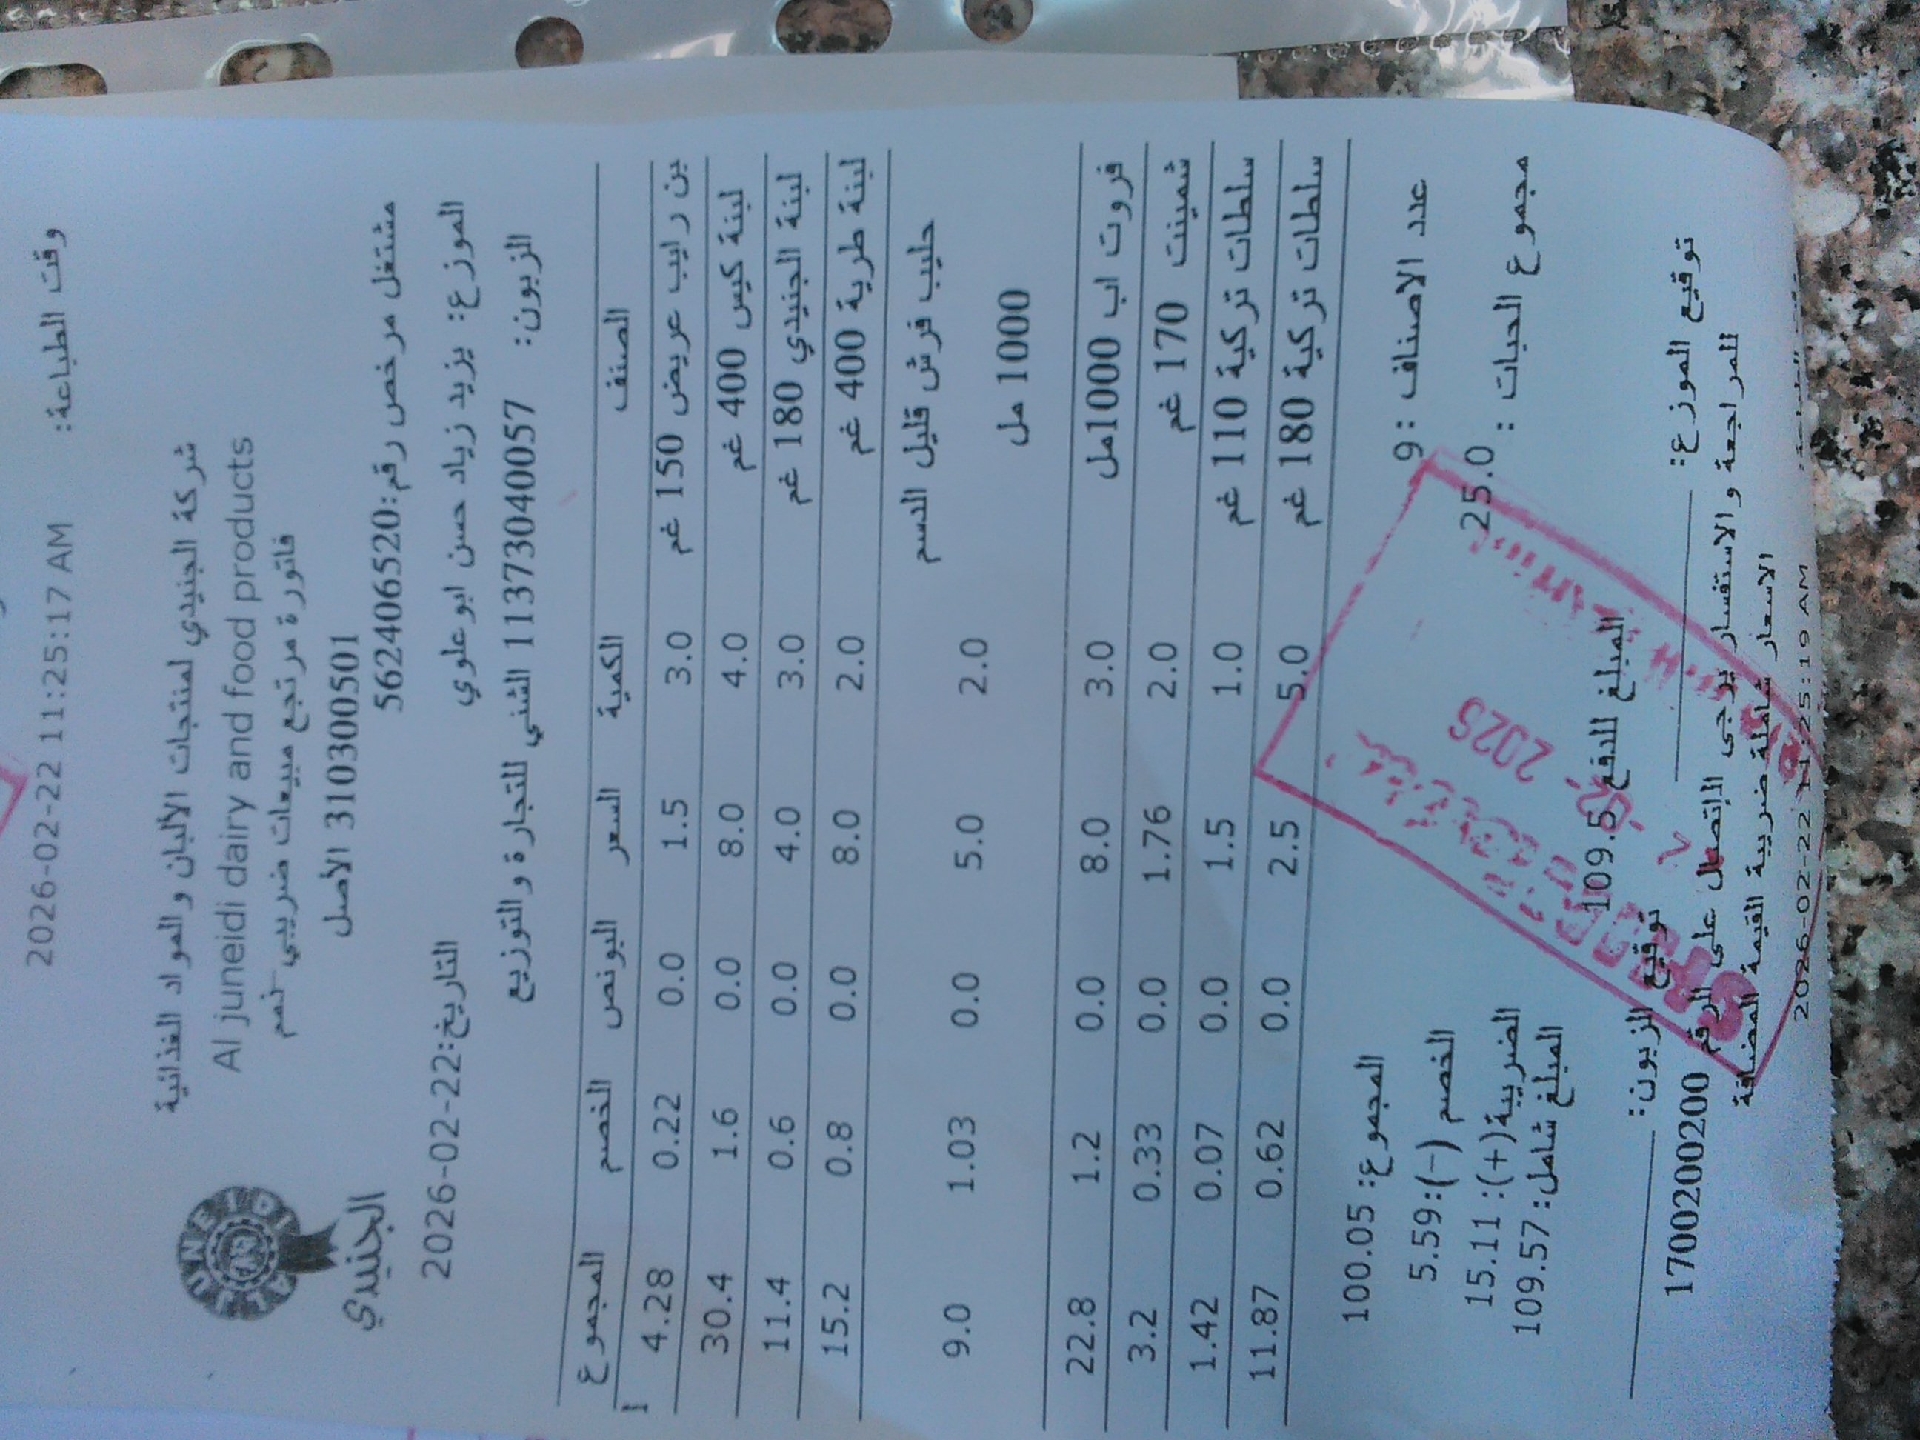 وقت الطباعة: 2026-02-22 11:25:17 AM
شركة الجنيدي لمنتجات الالبان والمواد الغذائية
Al juneidi dairy and food products
فاتورة مرتجع مبيعات ضريبي نسم
3103005501 الأصل
AL JUNEIDI
الجنيدي
مشتغل مرخص رقم:562406520
الموزع: يزيد زياد حسن ابو علوي
التاريخ:2026-02-22
الزبون: 11373040057 الشني للتجارة والتوزيع
الصنف الكمية السعر البونص الخصم المجموع
بن رايب عريض 150 غم 3.0 1.5 0.0 0.22 4.28
لبنة كيس 400 غم 4.0 8.0 0.0 1.6 30.4
لبنة الجنيدي 180 غم 3.0 4.0 0.0 0.6 11.4
لبنة طرية 400 غم 2.0 8.0 0.0 0.8 15.2
حليب فرش قليل الدسم 1000 مل 2.0 5.0 0.0 1.03 9.0
فروت اب 1000مل 3.0 8.0 0.0 1.2 22.8
شمينت 170 غم 2.0 1.76 0.0 0.33 3.2
سلطات تركية 110 غم 1.0 1.5 0.0 0.07 1.42
سلطات تركية 180 غم 5.0 2.5 0.0 0.62 11.87
عدد الاصناف : 9
مجموع الحبات : 25.0
المجموع: 100.05
الخصم (-):5.59
الضريبة(+): 15.11
المبلغ شامل: 109.57
المبلغ للدفع 109.5
2026
توقيع الموزع:
توقيع الزبون:
للمراجعة والاستفسار يرجى الاتصال على الرقم 1700200200
الاسعار شاملة ضريبة القيمة المضافة
2026-02-22 11:25:19 AM